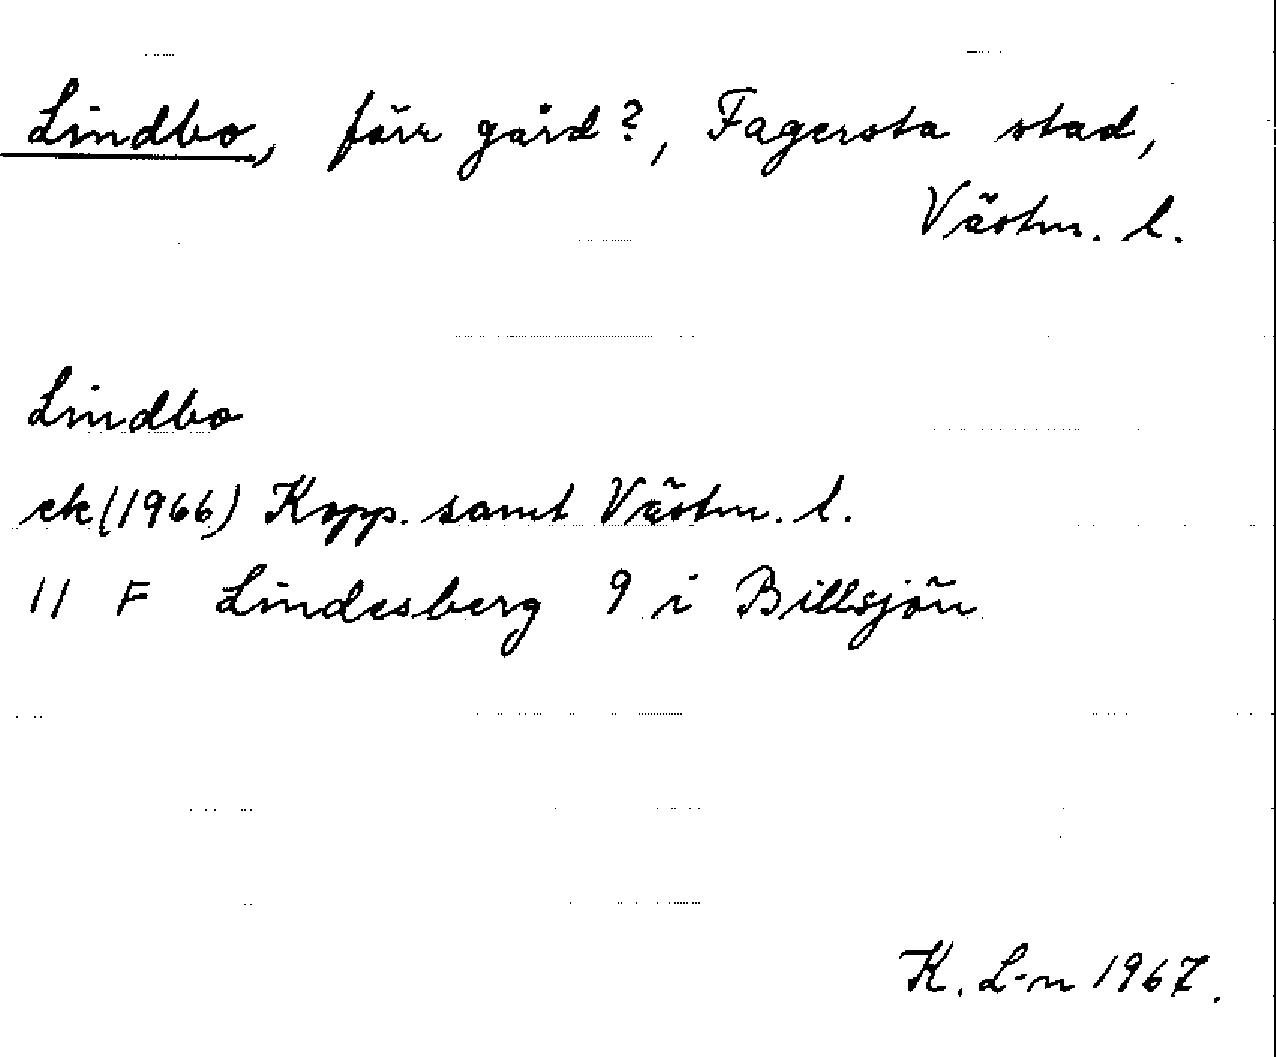 Lindbo, förr gård?, Fagersta stad,
Västm. l.
Lindbo
ek (1966) Kopp. samt Västm. l.
11 F Lindesberg 9 i Billsjön
K. L-n 1967.